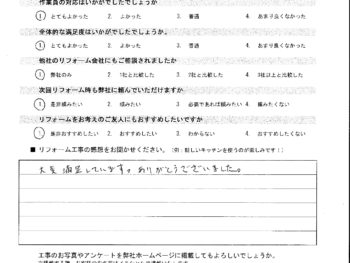 作業員の対応はいかがでしたでしょうか。
① とてもよかった 2. よかった 3. 普通 4. あまり良くなかった
全体的な満足度はいかがでしたでしょうか。
① とてもよかった 2. よかった 3. 普通 4. あまり良くなかった
他社のリフォーム会社にもご相談されましたか
① 弊社のみ 2. 1社と比較した 3. 2社と比較した 4. 3社以上と比較した
次回リフォーム時も弊社に頼んでいただけますか
① 是非頼みたい 2. 頼みたい 3. 必要であれば頼みたい 4. 頼みたくない
リフォームをお考えのご友人にもおすすめしたいですか
① 是非おすすめしたい 2. おすすめしたい 3. わからない 4. おすすめしたくない
■ リフォーム工事の感想をお聞かせください。(例：新しいキッチンを使うのが楽しみです！)
大変満足しています。ありがとうございました。
工事のお写真やアンケートを弊社ホームページに掲載してもよろしいでしょうか。